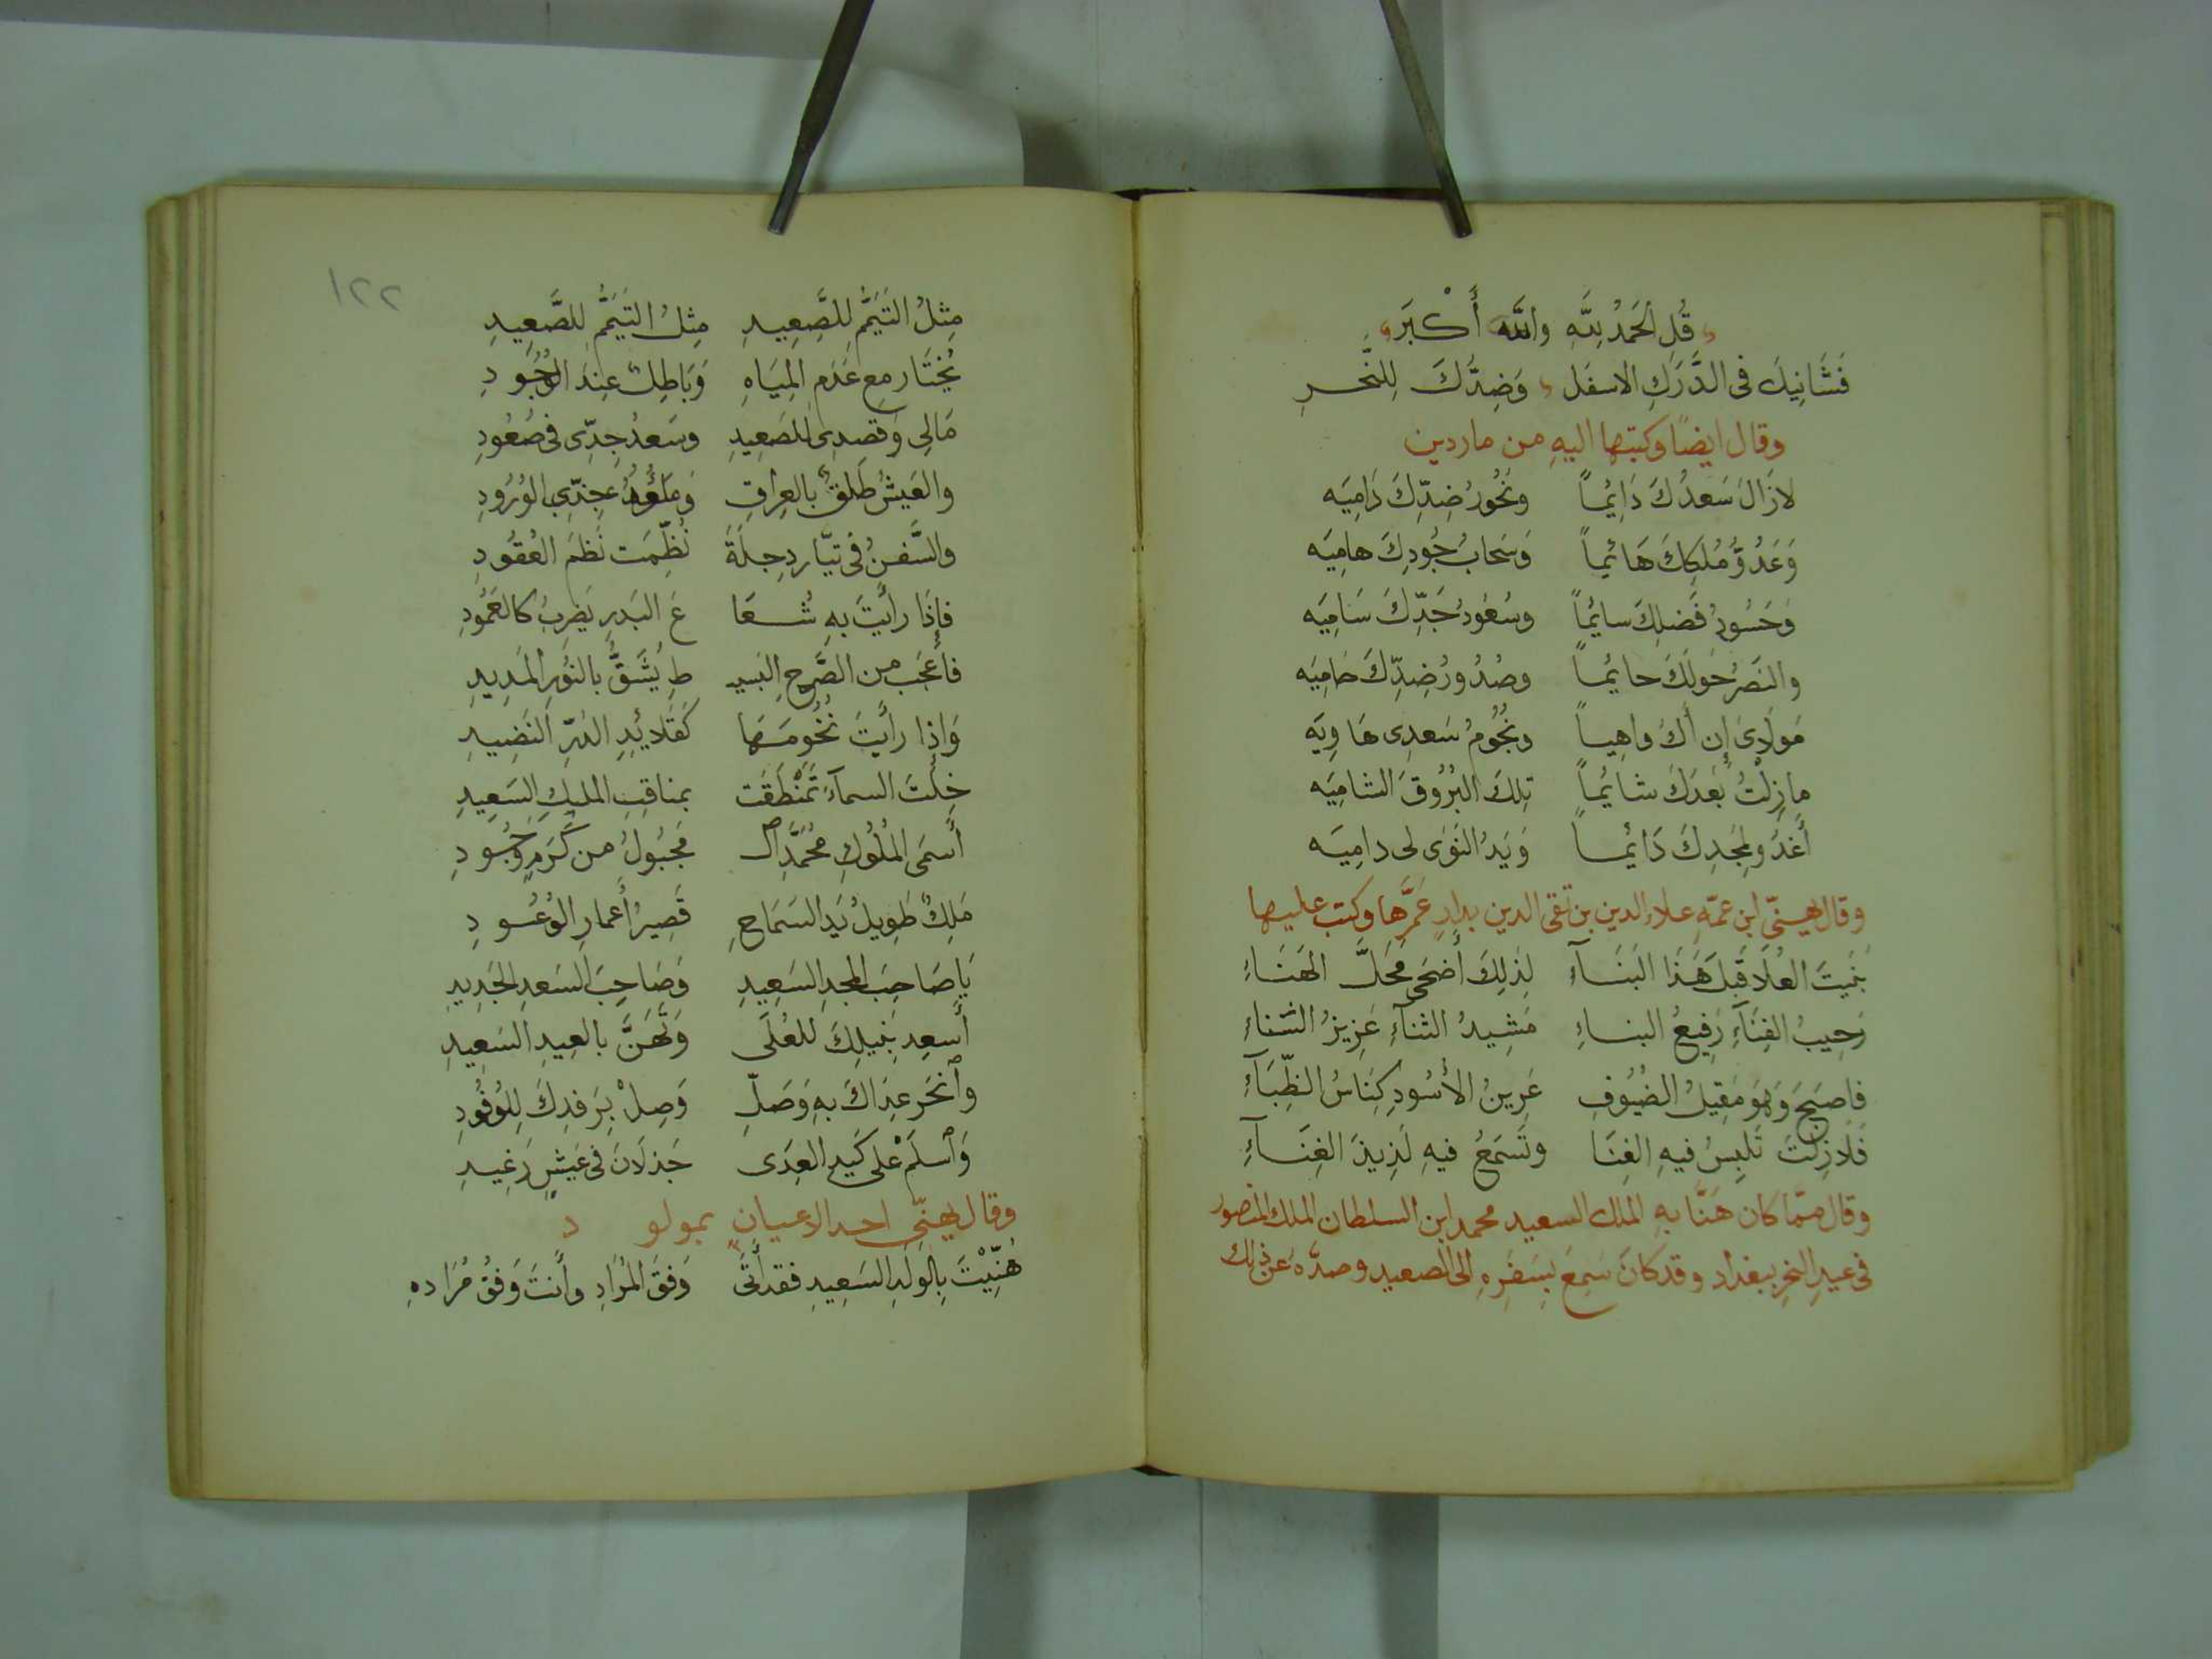 قُلِ الحَمدُ لِلّهِ واللَّه أَكْبَر
فَشَانِيكَ فى الدَّرَكِ الاسفَل وَضِدُّكَ لِلنَّحرِ
وقال ايضًا وكتبها اليهِ من ماردين
لازَالَ سَعدُكَ دَائِماً ونُحُورُ ضِدِّكَ دَامِيَه
وَعَدُوُّ مُلكِكَ هَائماً وَسَحابُ جُودِكَ هامِيَه
وَحَسُودُ فَضلِكَ سايُماً وسُعُودُ جَدِّكَ سَامِيَه
والنَصرُ حَولَكَ حايُماً وصُدُورُ ضِدِّكَ حَامِيَه
مَولَاىَ إِن أَكُ واهِياً ونُجُومُ سَعدِى هَاوِيَه
مازِلْتُ بَعدَكَ شايُماً تِلكَ البُرُوقَ الشامِيَه
أَغدُو لِمَجدِكَ دَائماً وَيَدُ النَوَى لى دامِيَه
وقال يهنّى ابن عمّهِ علاء الدين بن تقى الدين بدارٍ عَمَّرَها وكتب عليها
بَنَيتَ العُلَا قَبلَ هَذَا البَنَآءِ لِذلِكَ أَضحَى مَحَلَّ الهَنَاءِ
رَحِيبُ الفِنَآءِ رَفِيعُ البناءِ مَشِيدُ الثنآءِ عَزِيزُ السَّناءِ
فاصبَحَ وَهوَ مَقِيلُ الضُيُوفِ عَرِينُ الأُسُودِ كِنَاسُ الظِّبَآءِ
فَلَا زِلتَ تَلبِسُ فيهِ الغِنَا وتَسمَعُ فيهِ لَذِيذَ الغِنَآءِ
وقال ممّا كان هَنَّا بهِ الملك السعيد محمد ابن السلطان الملك المنصور
فى عيدِ النحرِ ببغداد وقد كانَ سَمِعَ بِسَفَرِهِ الى الصعيد وصدَّهُ عَن ذلك
١٢٢
مِثلُ التَيَمُّمِ لِلصَّعِيدِ مِثلُ التَيَمُّمِ لِلصَّعِيدِ
يُختَار مع عَدَمِ المِيَاهِ وَبَاطِلٌ عِندَ الوُجُودِ
مَالِى وَقصدِى لِلصَعِيدِ وسَعدُ جِدِّى فى صُعُودِ
والعَيشُ طَلقٌ بالعِراقِ وَمَآؤُهُ عِندِى الوُرُودِ
والسَّفنُ فى تيَّارِ دِجلَةَ نُظِّمَت نَظمَ العُقُودِ
فإذَا رأَيتَ بهِ شُعَا عَ البَدرِ يَضرِبُ كالعَمُودِ
فأَعجَب من الصَّرحِ البَسِيـ طِ يُشَقُّ بالنُورِ المَدِيدِ
وَاذا رأَيتَ نُجُومَهَا كَقَلَايُدِ الدُرِّ النَضِيدِ
خِلتَ السمآءَ تَمَنْطَقَت بمناقِبِ الملِكِ السَعِيدِ
أَسمَى المُلُوكِ مُحَمَّدِ آلـ مَجبُولُ من كَرَمٍ وَجُودِ
مَلِكٌ طَوِيلُ يَدِ السَمَاحِ قَصِيرُ أَعمارِ الوُعُودِ
يَا صَاحِبَ المجدِ السَعِيدِ وَصَاحِبَ السَعدِ الجَدِيدِ
أَسعِد بِنَيلِكَ للعُلَى وَتَهَنَّ بالعِيدِ السَعِيدِ
وآنحَر عِدَاكَ بهِ وَصَلِّ وَصِلْ بِرَفدِكَ لِلوُفُودِ
وَآسلَم عَلى كَيدِ العِدَى جَذلَانَ فى عَيشٍ رَغِيدِ
وقال يهنّى احد الاعيانِ بمولود
هُنِّيْتَ بِالوَلَدِ السَعِيدِ فقد أَتَى وَفقَ المُرَادِ وأَنتَ وَفقُ مُرَادهِ